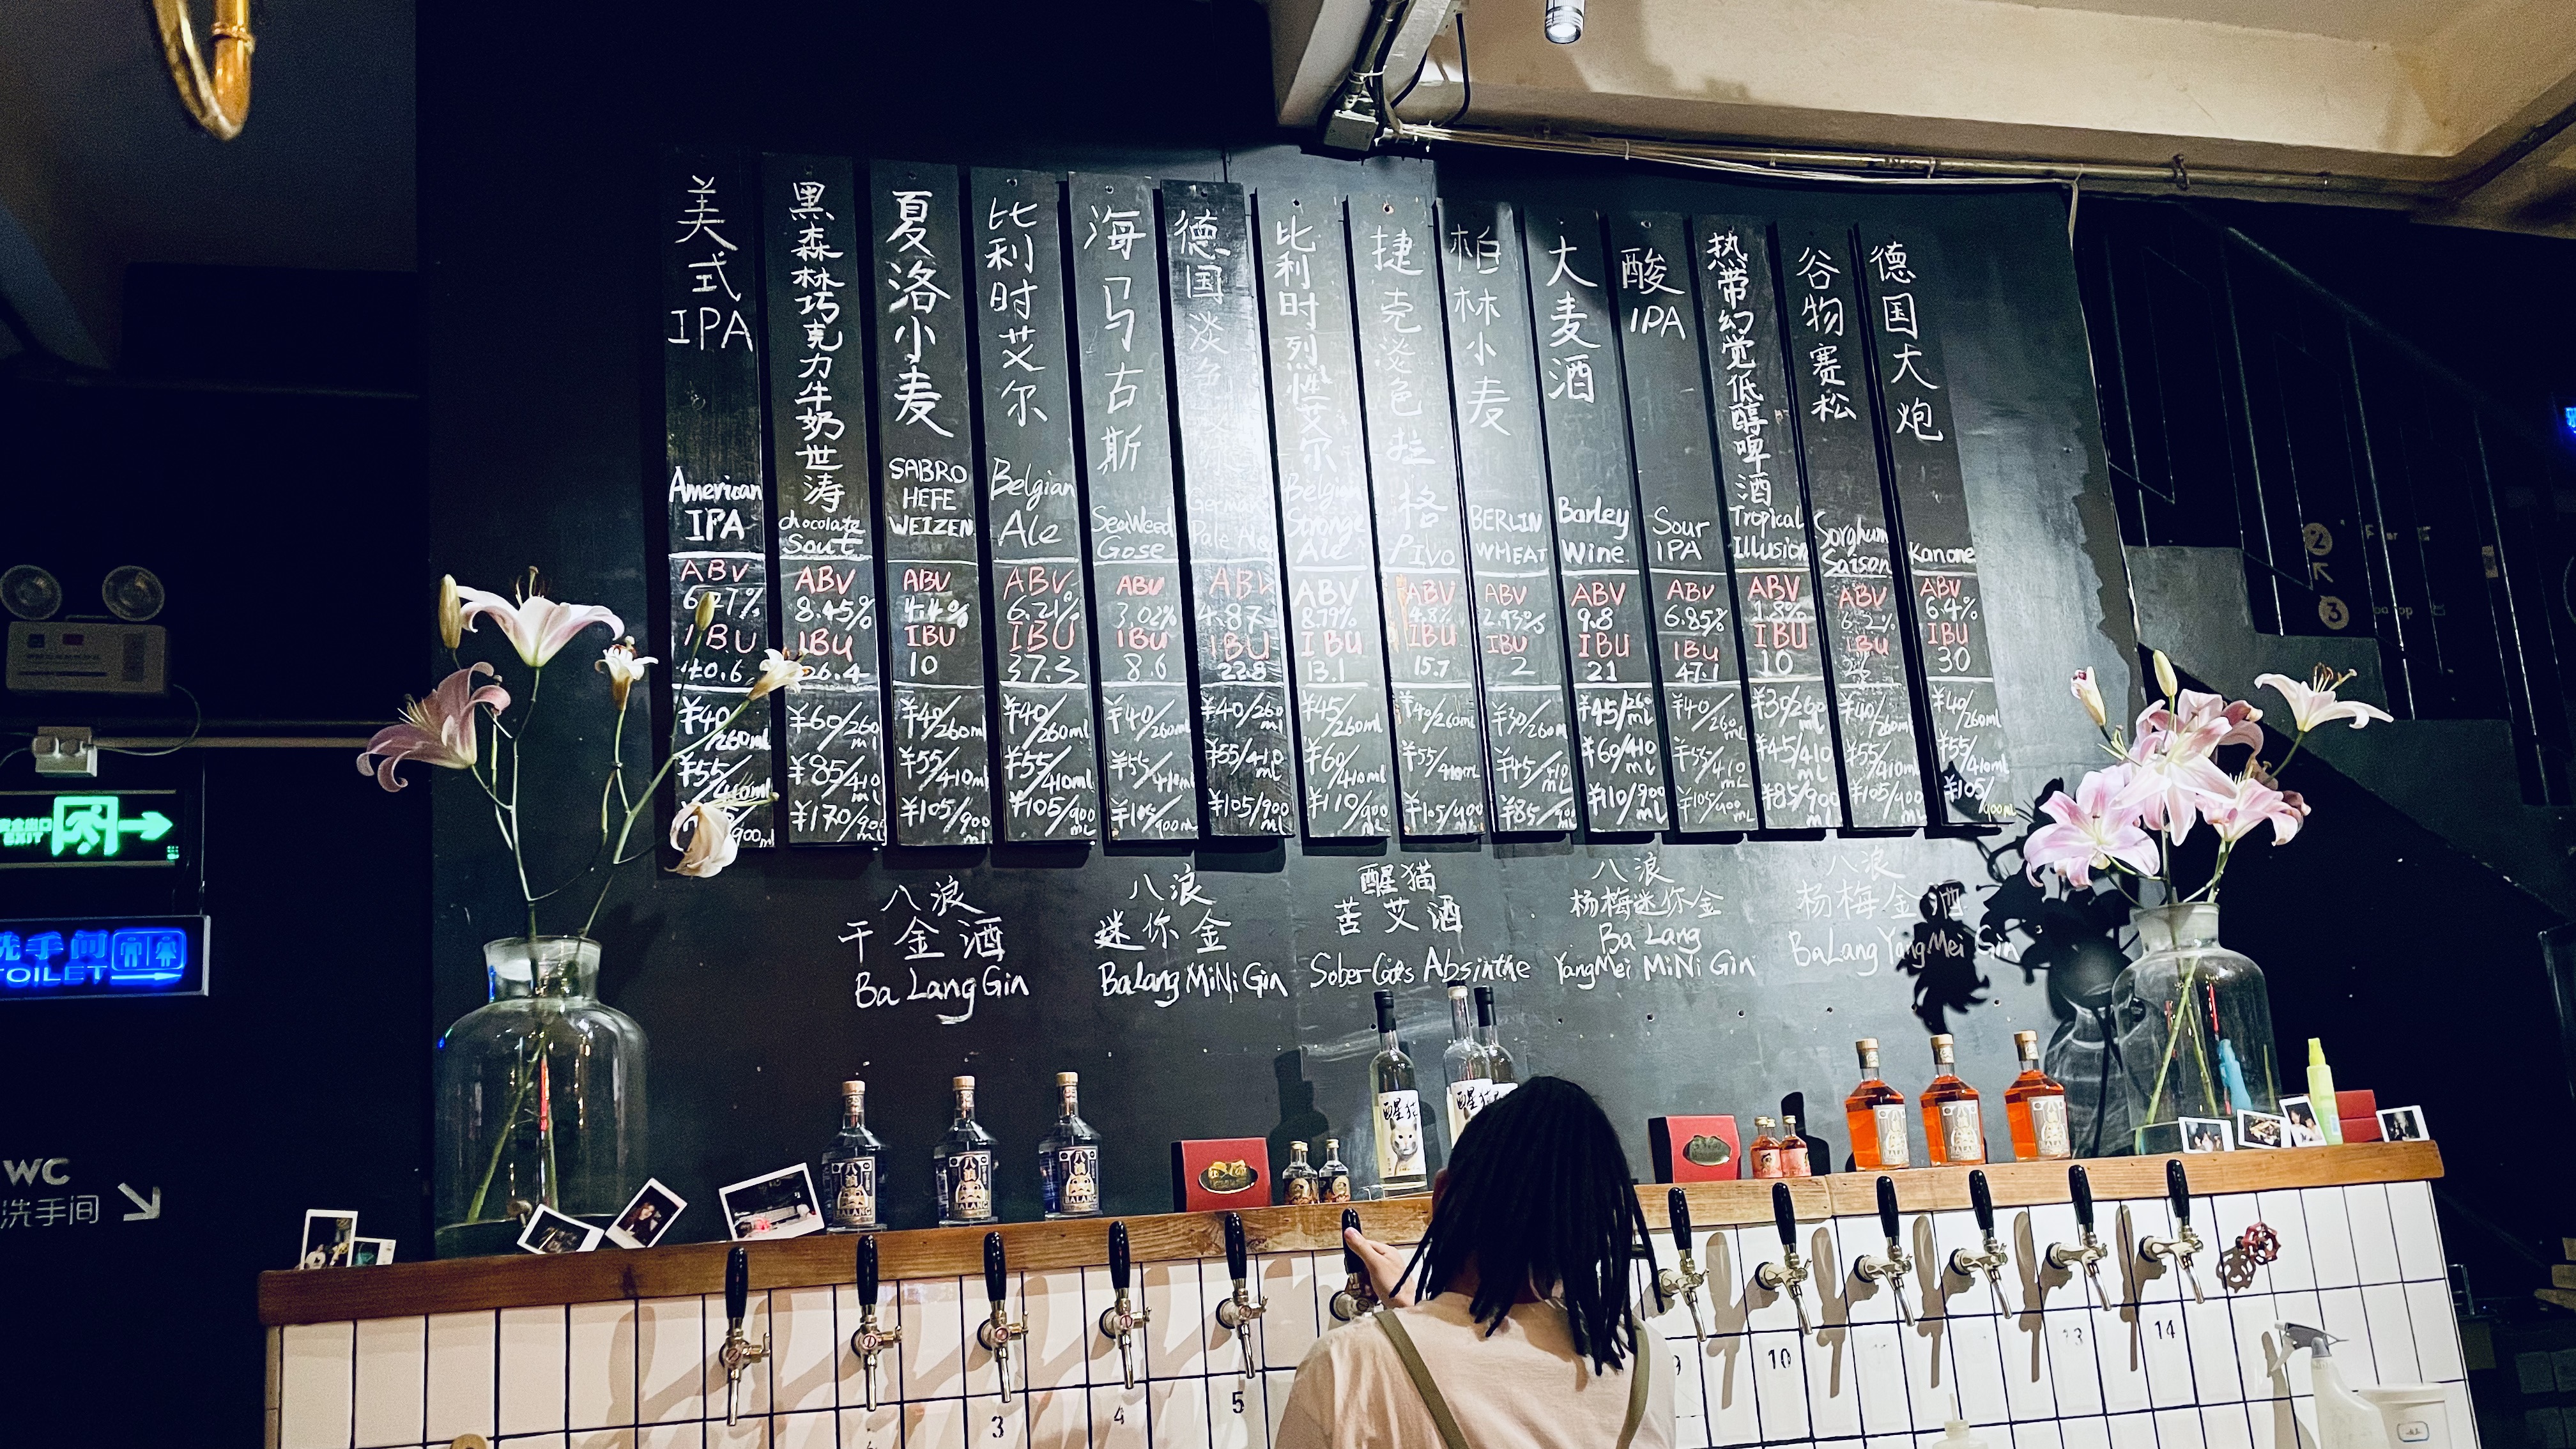 美式IPA
American
IPA
ABV
IBU
40.6
¥40/260ml
¥55/410ml
黑森林巧克力牛奶世涛
chocolate
Sout
ABV
8.45%
IBU
26.4
¥60/260ml
¥85/410ml
¥170/900ml
夏洛小麦
SABRO
HEFE
WEIZEN
ABV
4.4%
IBU
10
¥40/260ml
¥55/410ml
¥105/900ml
比利时艾尔
Belgian
Ale
ABV
6.21%
IBU
37.3
¥40/260ml
¥55/410ml
¥105/900ml
海马古斯
SeaWeed
Gose
ABV
3.02%
IBU
8.6
¥40/260ml
¥55/410ml
¥105/900ml
德国淡色
German
Pale Ale
ABV
4.87
IBU
22.8
¥40/260ml
¥55/410ml
¥105/900ml
比利时烈性艾尔
Belgian
Stronge
Ale
ABV
8.79%
IBU
13.1
¥45/260ml
¥60/410ml
¥110/900ml
捷克淡色拉格
Pivo
ABV
4.8%
IBU
15.7
¥40/260ml
¥55/410ml
¥105/900ml
柏林小麦
BERLIN
WHEAT
ABV
2.93%
IBU
2
¥30/260ml
¥45/410ml
¥85/900ml
大麦酒
Barley
Wine
ABV
9.8
IBU
21
¥45/260ml
¥60/410ml
¥110/900ml
酸IPA
Sour
IPA
ABV
6.85%
IBU
47.1
¥40/260ml
¥55/410ml
¥105/900ml
热带幻觉低醇啤酒
Tropical
Illusion
ABV
1.8%
IBU
10
¥30/260ml
¥45/410ml
¥85/900ml
谷物赛松
Sorghum
Saison
ABV
IBU
¥40/260ml
¥55/410ml
¥105/900ml
德国大炮
Kanone
ABV
6.4%
IBU
30
¥40/260ml
¥55/410ml
¥105/900ml
八浪
干金酒
Ba Lang Gin
八浪
迷你金
BaLang MiNi Gin
醒猫
苦艾酒
Sober Cats Absinthe
八浪
杨梅迷你金
Ba Lang
YangMei MiNi Gin
八浪
杨梅金酒
BaLang YangMei Gin
安全出口
EXIT
洗手间
TOILET
WC
洗手间
2
3
八浪
BALANG
八浪
BALANG
八浪
BALANG
醒猫
3
4
5
9
10
13
14